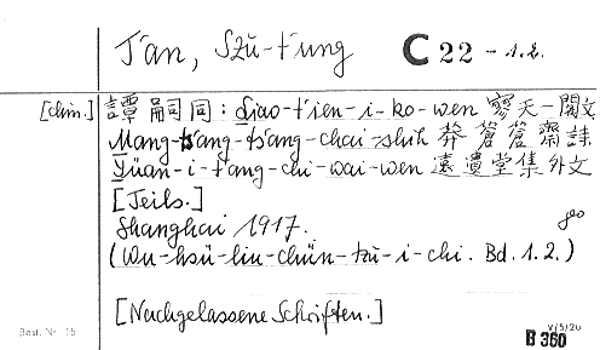 T'an, Szŭ-t'ung C 22 - 1.2.
[chin.] 譚嗣同: Liao-t'ien-i-ko-wen 寥天一閣文
Mang-ts'ang-ts'ang-chai-shih 莽蒼蒼齋詩
Yüan-i-t'ang-chi-wai-wen 遠遺堂集外文
[Teils.]
Shanghai 1917.
(Wu-hsü-liu-chün-tzŭ-i-chi. Bd. 1.2.)
[Nachgelassene Schriften.]
Best. Nr. 15
V/5/20
B 360